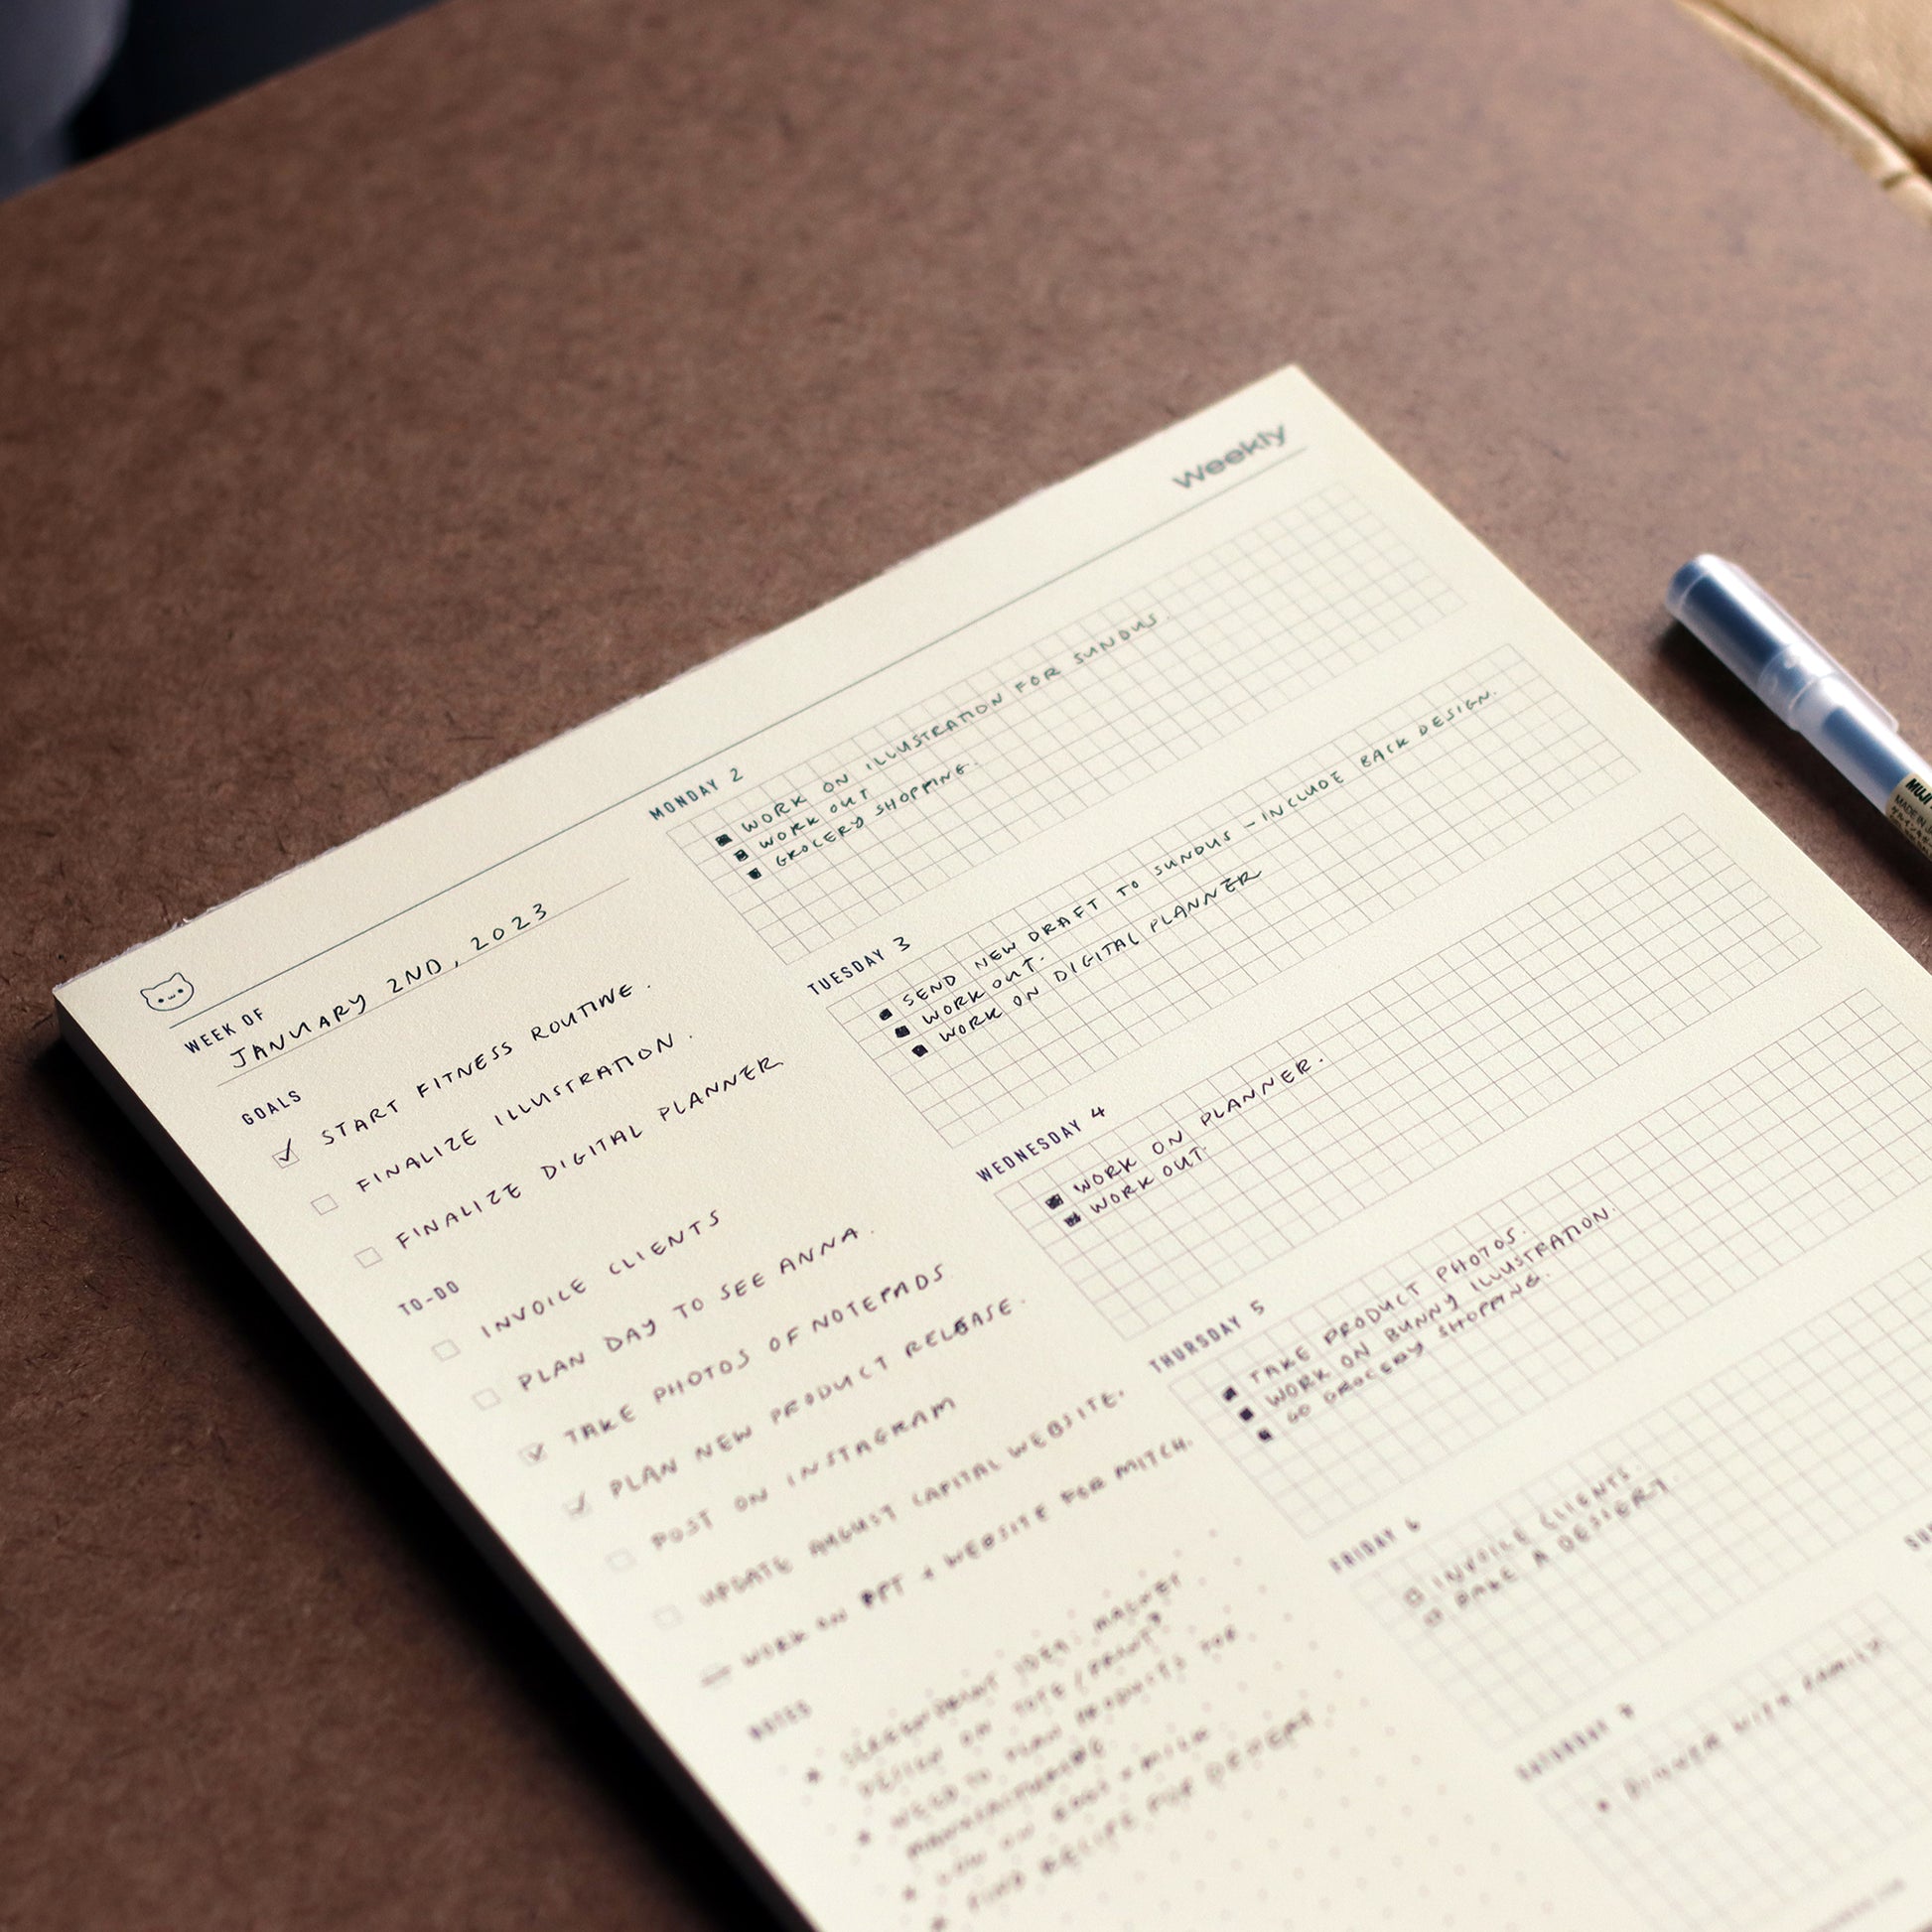 weekly
WEEK OF
JANUARY 2ND, 2023
GOALS
START FITNESS ROUTINE.
FINALIZE ILLUSTRATION.
FINALIZE DIGITAL PLANNER
TO-DO
INVOICE CLIENTS
PLAN DAY TO SEE ANNA.
TAKE PHOTOS OF NOTEPADS
PLAN NEW PRODUCT RELEASE.
POST ON INSTAGRAM
UPDATE AUGUST CAPITAL WEBSITE.
WORK ON PPT & WEBSITE FOR MITCH.
NOTES
IDEA: MAGNET
DESIGN ON TOTE/PRINT?
NEED TO PLAN PRODUCTS FOR
LOW ON EGGS + MILK
FIND RECIPE FOR DESSERT
MONDAY 2
WORK ON ILLUSTRATION FOR SUNDUS.
WORK OUT
GROCERY SHOPPING.
TUESDAY 3
SEND NEW DRAFT TO SUNDUS - INCLUDE BACK DESIGN.
WORK OUT.
WORK ON DIGITAL PLANNER
WEDNESDAY 4
WORK ON PLANNER.
WORK OUT.
THURSDAY 5
TAKE PRODUCT PHOTOS.
WORK ON BUNNY ILLUSTRATION.
GO GROCERY SHOPPING.
FRIDAY 6
INVOICE CLIENTS.
BAKE A DESSERT.
SATURDAY 7
DINNER WITH FAMILY
MUJI
MADE IN